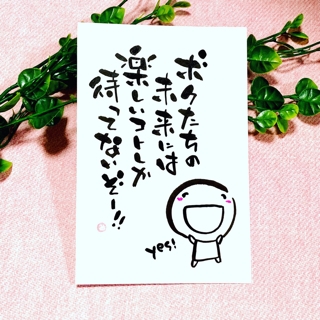 ボクたちの
未来には
楽しいコトしか
待ってないぞー!!
yes!